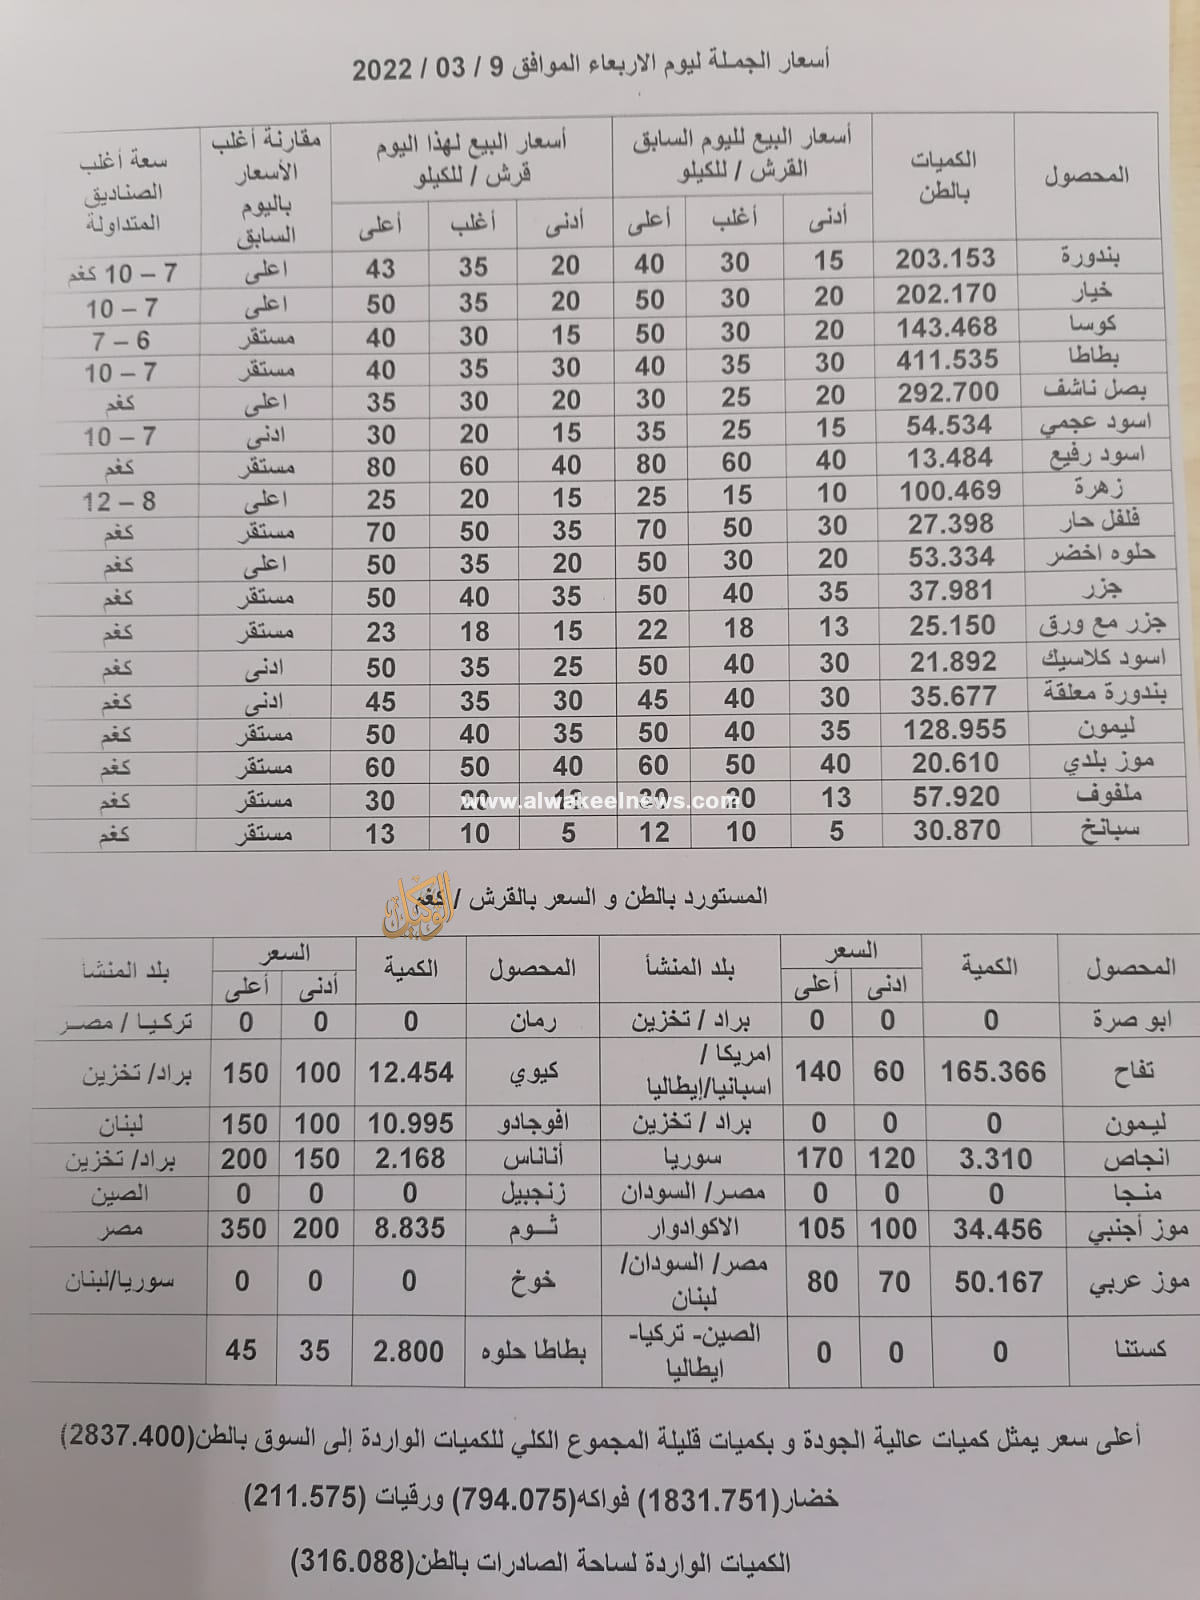 أسعار الجملة ليوم الاربعاء الموافق 9 / 03 / 2022
المحصول الكميات بالطن أسعار البيع لليوم السابق القرش / للكيلو أسعار البيع لهذا اليوم قرش / للكيلو مقارنة أغلب الأسعار باليوم السابق سعة أغلب الصناديق المتداولة
أدنى أغلب أعلى أدنى أغلب أعلى
بندورة 203.153 15 30 40 20 35 43 اعلى 7 – 10 كغم
خيار 202.170 20 30 50 20 35 50 اعلى 7 – 10
كوسا 143.468 20 30 50 15 30 40 مستقر 6 – 7
بطاطا 411.535 30 35 40 30 35 40 مستقر 7 – 10
بصل ناشف 292.700 20 25 30 20 30 35 اعلى كغم
اسود عجمي 54.534 15 25 35 15 20 30 ادنى 7 – 10
اسود رفيع 13.484 40 60 80 40 60 80 مستقر كغم
زهرة 100.469 10 15 25 15 20 25 اعلى 8 – 12
فلفل حار 27.398 30 50 70 35 50 70 مستقر كغم
حلوه اخضر 53.334 20 30 50 20 35 50 اعلى كغم
جزر 37.981 35 40 50 35 40 50 مستقر كغم
جزر مع ورق 25.150 13 18 22 15 18 23 مستقر كغم
اسود كلاسيك 21.892 30 40 50 25 35 50 ادنى كغم
بندورة معلقة 35.677 30 40 45 30 35 45 ادنى كغم
ليمون 128.955 35 40 50 35 40 50 مستقر كغم
موز بلدي 20.610 40 50 60 40 50 60 مستقر كغم
ملفوف 57.920 13 20 30 20 30 مستقر كغم
www.alwakeelnews.com
سبانخ 30.870 5 10 12 5 10 13 مستقر كغم
المستورد بالطن و السعر بالقرش / كغم
الوكيل
المحصول الكمية السعر بلد المنشأ المحصول الكمية السعر بلد المنشأ
ادنى أعلى أدنى أعلى
ابو صرة 0 0 0 براد / تخزين رمان 0 0 0 تركيا / مصر
تفاح 165.366 60 140 امريكا / اسبانيا/إيطاليا كيوي 12.454 100 150 براد/ تخزين
ليمون 0 0 0 براد / تخزين افوجادو 10.995 100 150 لبنان
انجاص 3.310 120 170 سوريا أناناس 2.168 150 200 براد/ تخزين
منجا 0 0 0 مصر/ السودان زنجبيل 0 0 0 الصين
موز أجنبي 34.456 100 105 الاكوادوار ثوم 8.835 200 350 مصر
موز عربي 50.167 70 80 مصر/ السودان/ لبنان خوخ 0 0 0 سوريا/لبنان
كستنا 0 0 0 الصين- تركيا- ايطاليا بطاطا حلوه 2.800 35 45
أعلى سعر يمثل كميات عالية الجودة و بكميات قليلة المجموع الكلي للكميات الواردة إلى السوق بالطن(2837.400)
خضار(1831.751) فواكه(794.075) ورقيات (211.575)
الكميات الواردة لساحة الصادرات بالطن(316.088)